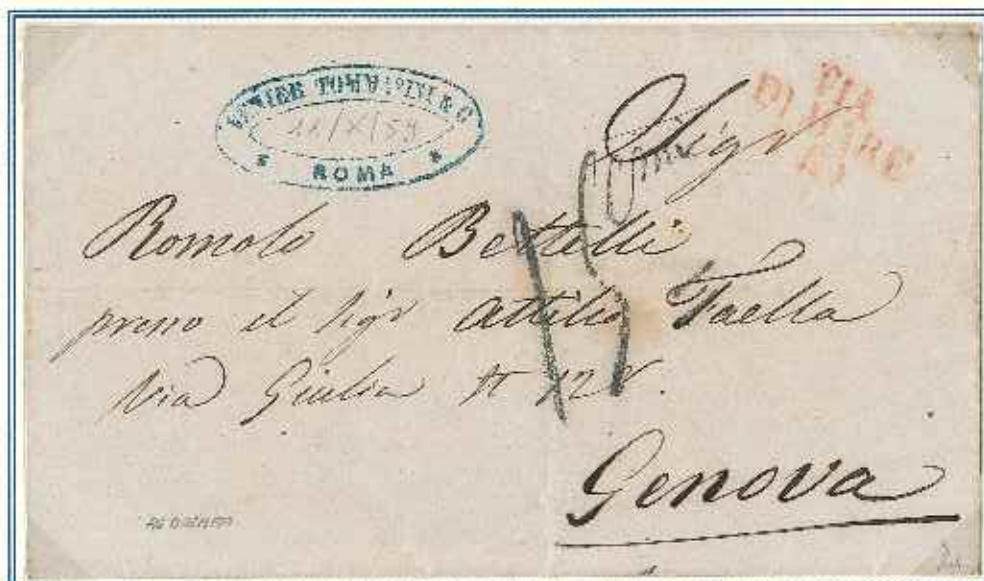 & C
11/X/59
ROMA
VIA
DI MARE
Sigr
Romolo Bettelli
presso il Sigr Attilio Faella
Via Giulia N 12
15
Genova